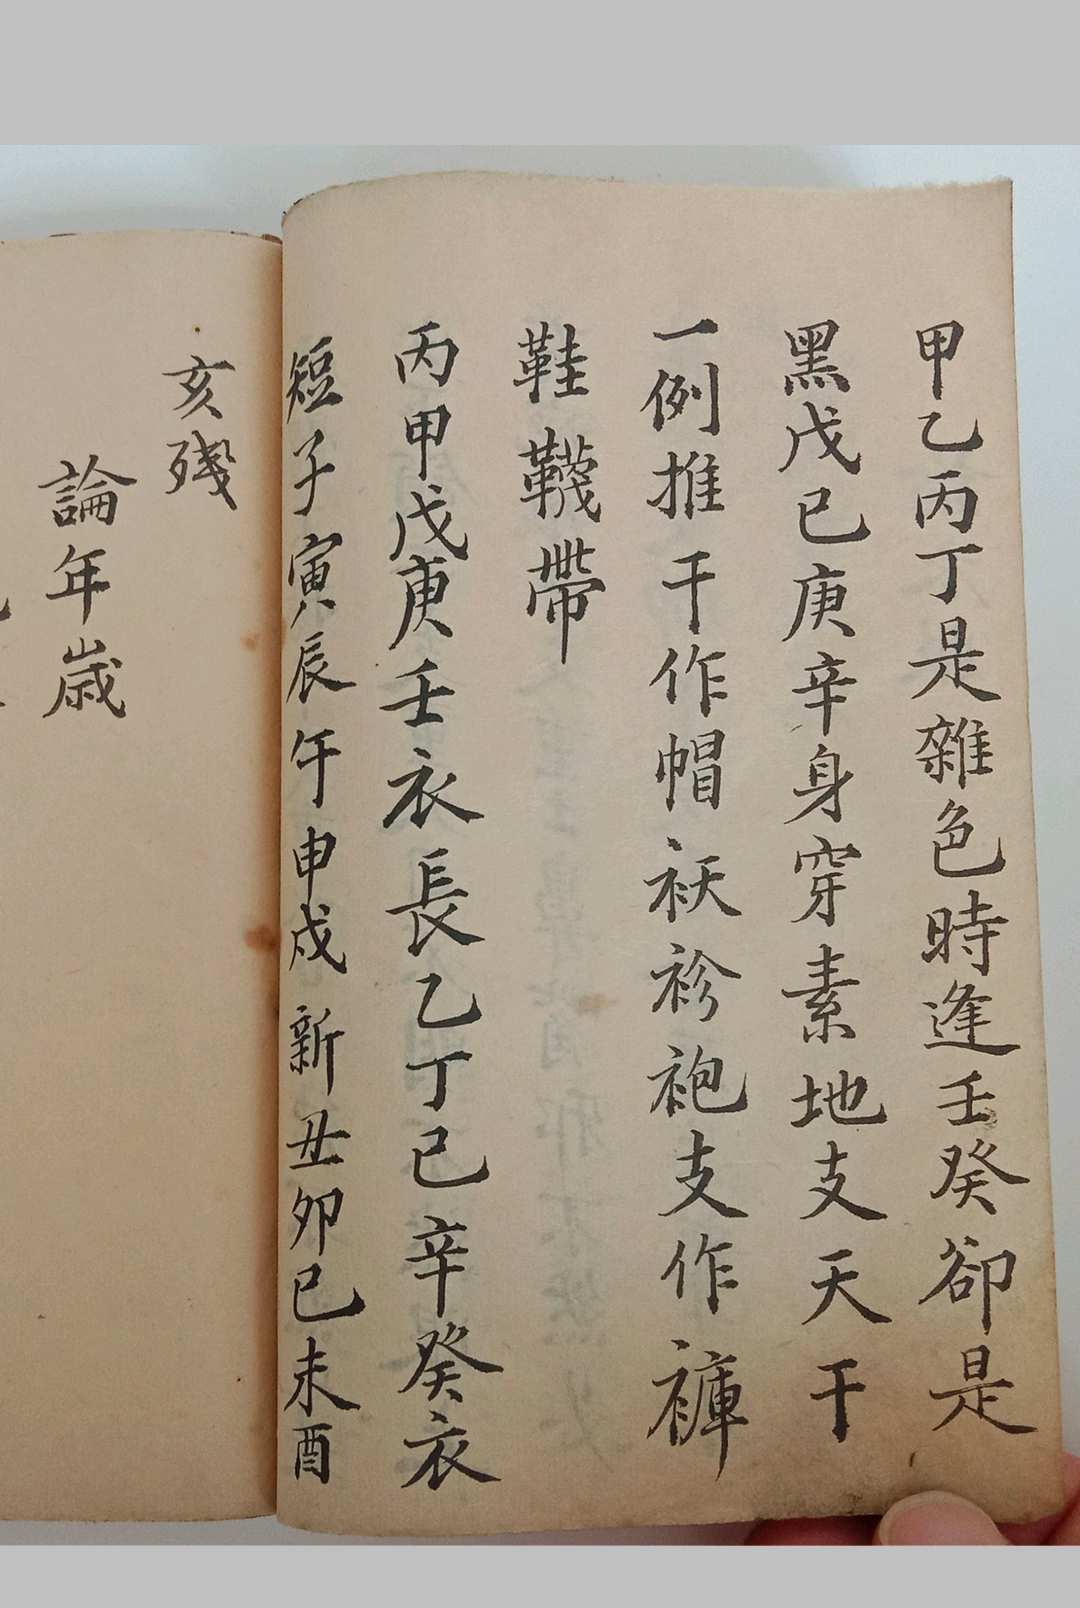 甲乙丙丁是雜色時逢壬癸卻是
黑戊已庚辛身穿素地支天干
一例推干作帽袄袗袍支作褲
鞋韈帶
丙甲戊庚壬衣長乙丁已辛癸衣
短子寅辰午申戌新丑卯已未酉
亥殘
論年歲